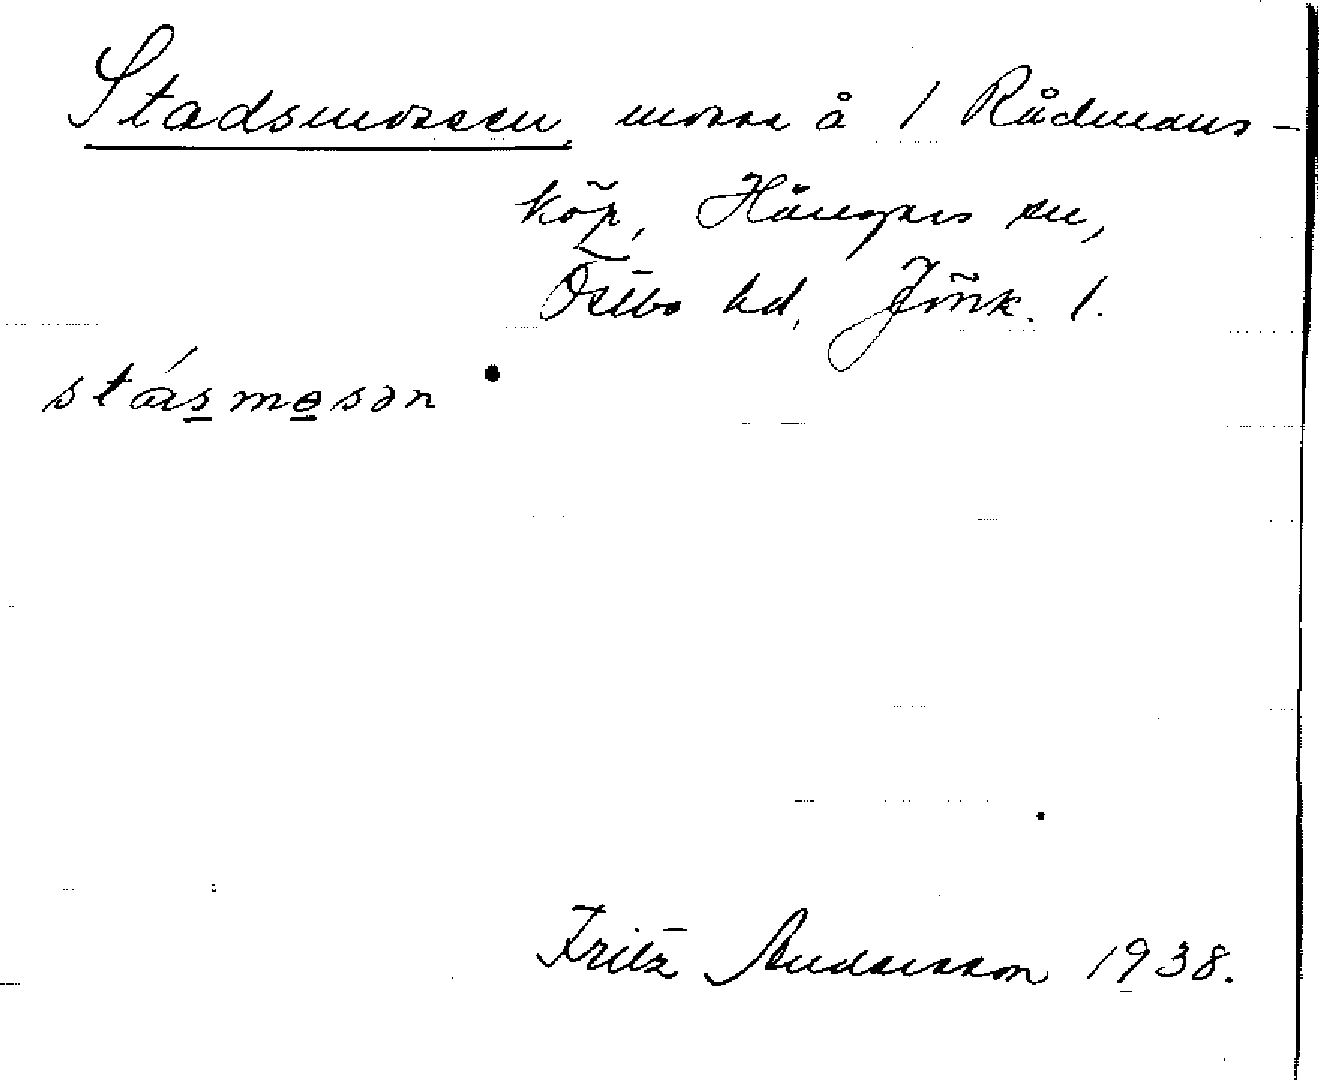 Stadsmossen, mosse å 1 Rådmans-
köp, Hångers sn,
Östbo hd, Jönk. l.
stásmosən
Fritz Andersson 1938.